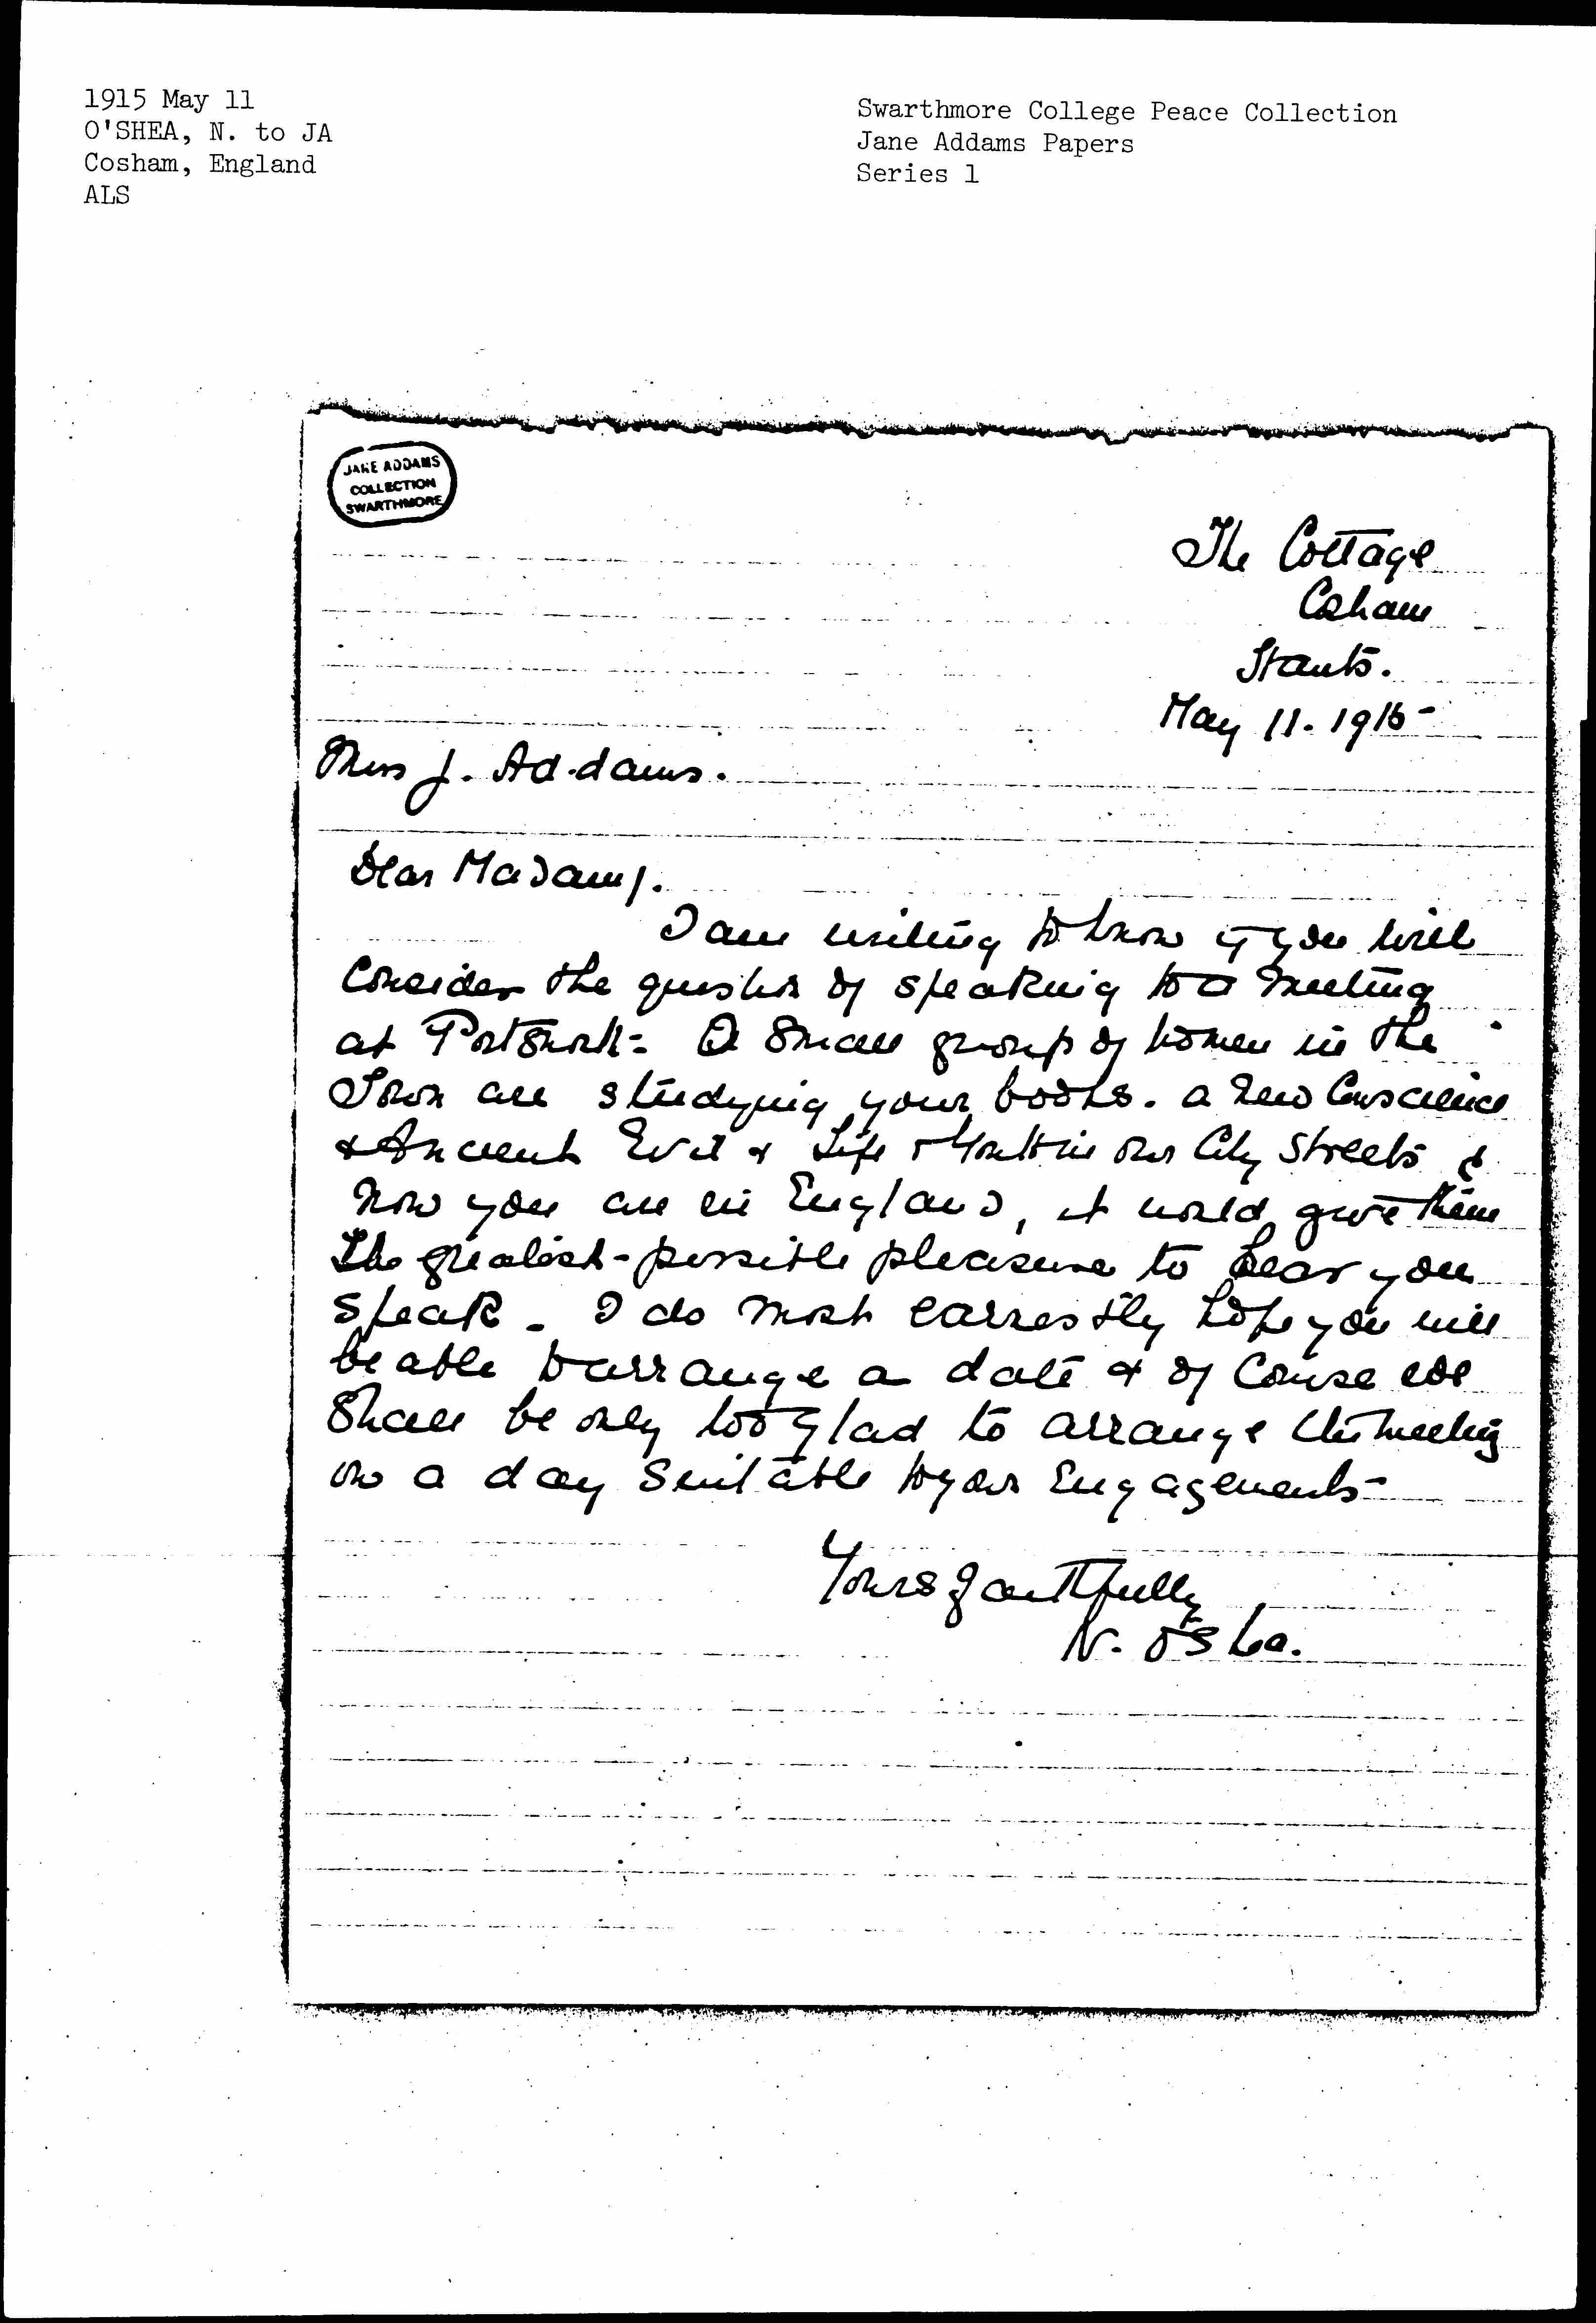 1915 May 11
O'SHEA, N. to JA
Cosham, England
ALS
Swarthmore College Peace Collection
Jane Addams Papers
Series 1
JANE ADDAMS
COLLECTION
SWARTHMORE
The Cottage
Cosham
Hants.
May 11. 1915
Miss J. Addams.
Dear Madam/.
I am writing to know if you will
Consider the question of speaking to a meeting
at Portsmouth. A Small group of women in the
Town are studying your books. a New Conscience
& Ancient Evil & Life & Youth in our City Streets &
now you are in England, it would give them
the greatest possible pleasure to hear you
speak. I do most earnestly hope you will
be able to arrange a date & of Course we
Shall be only too glad to arrange the meeting
on a day Suitable to your Engagements
Yours faithfully
N. O'Shea.